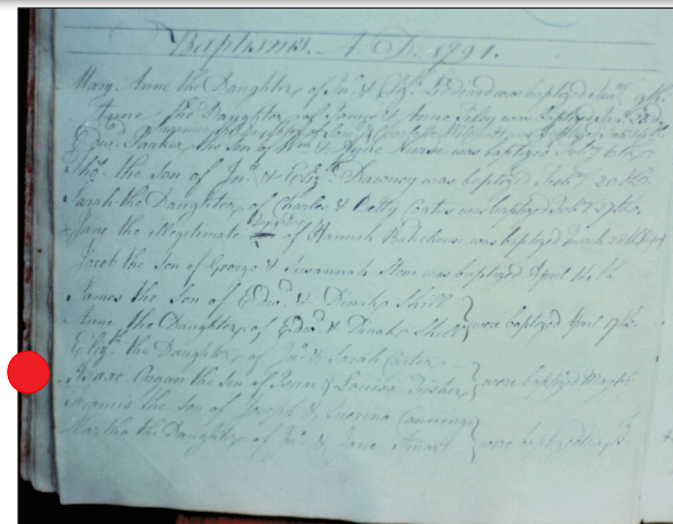 Baptisms. A. D. 1791.
Mary Anne the Daughter of Jno. & Eliz. was baptized Jany. 9th.
Anne the Daughter of James & Anne was baptized
the Daughter of Saml. & Charlotte was baptized
Edwd. the Son of Wm. & Nurse was baptized Feby. 6th.
Thos. the Son of Jno. & Eliz. Dawney was baptized Feby. 20th.
Sarah the Daughter of Charles & Betty Coates was baptized Feby. 27th.
x Jane the illegitimate Daughter of Hannah Bakehouse was baptized March
Jacob the Son of George & Susannah was baptized April
James the Son of Edwd. & Dinah Shill
Anne the Daughter of Edwd. & Dinah Shill } were baptized April 17th.
Eliz. the Daughter of Jno. & Sarah Carter
Isaac Organ the Son of Isaac & Louisa Fisher } were baptized May
Francis the Son of Joseph & Cannings
Martha the Daughter of & Jane Stuart } were baptized